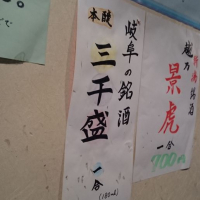 岐阜の銘酒
本醸
三千盛
一合
(180ml)
越乃
景虎
一合
700円